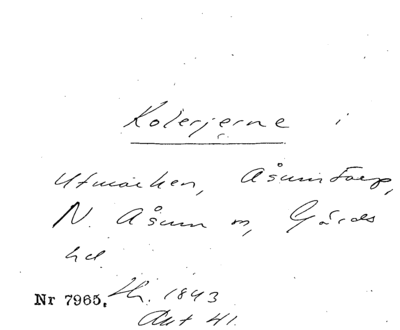 Kolerjerne i
Utmarken, Åsumtorp,
N. Åsum sn, Gärds
hd
Nr 7965. Sk. 1843
Akt 41.